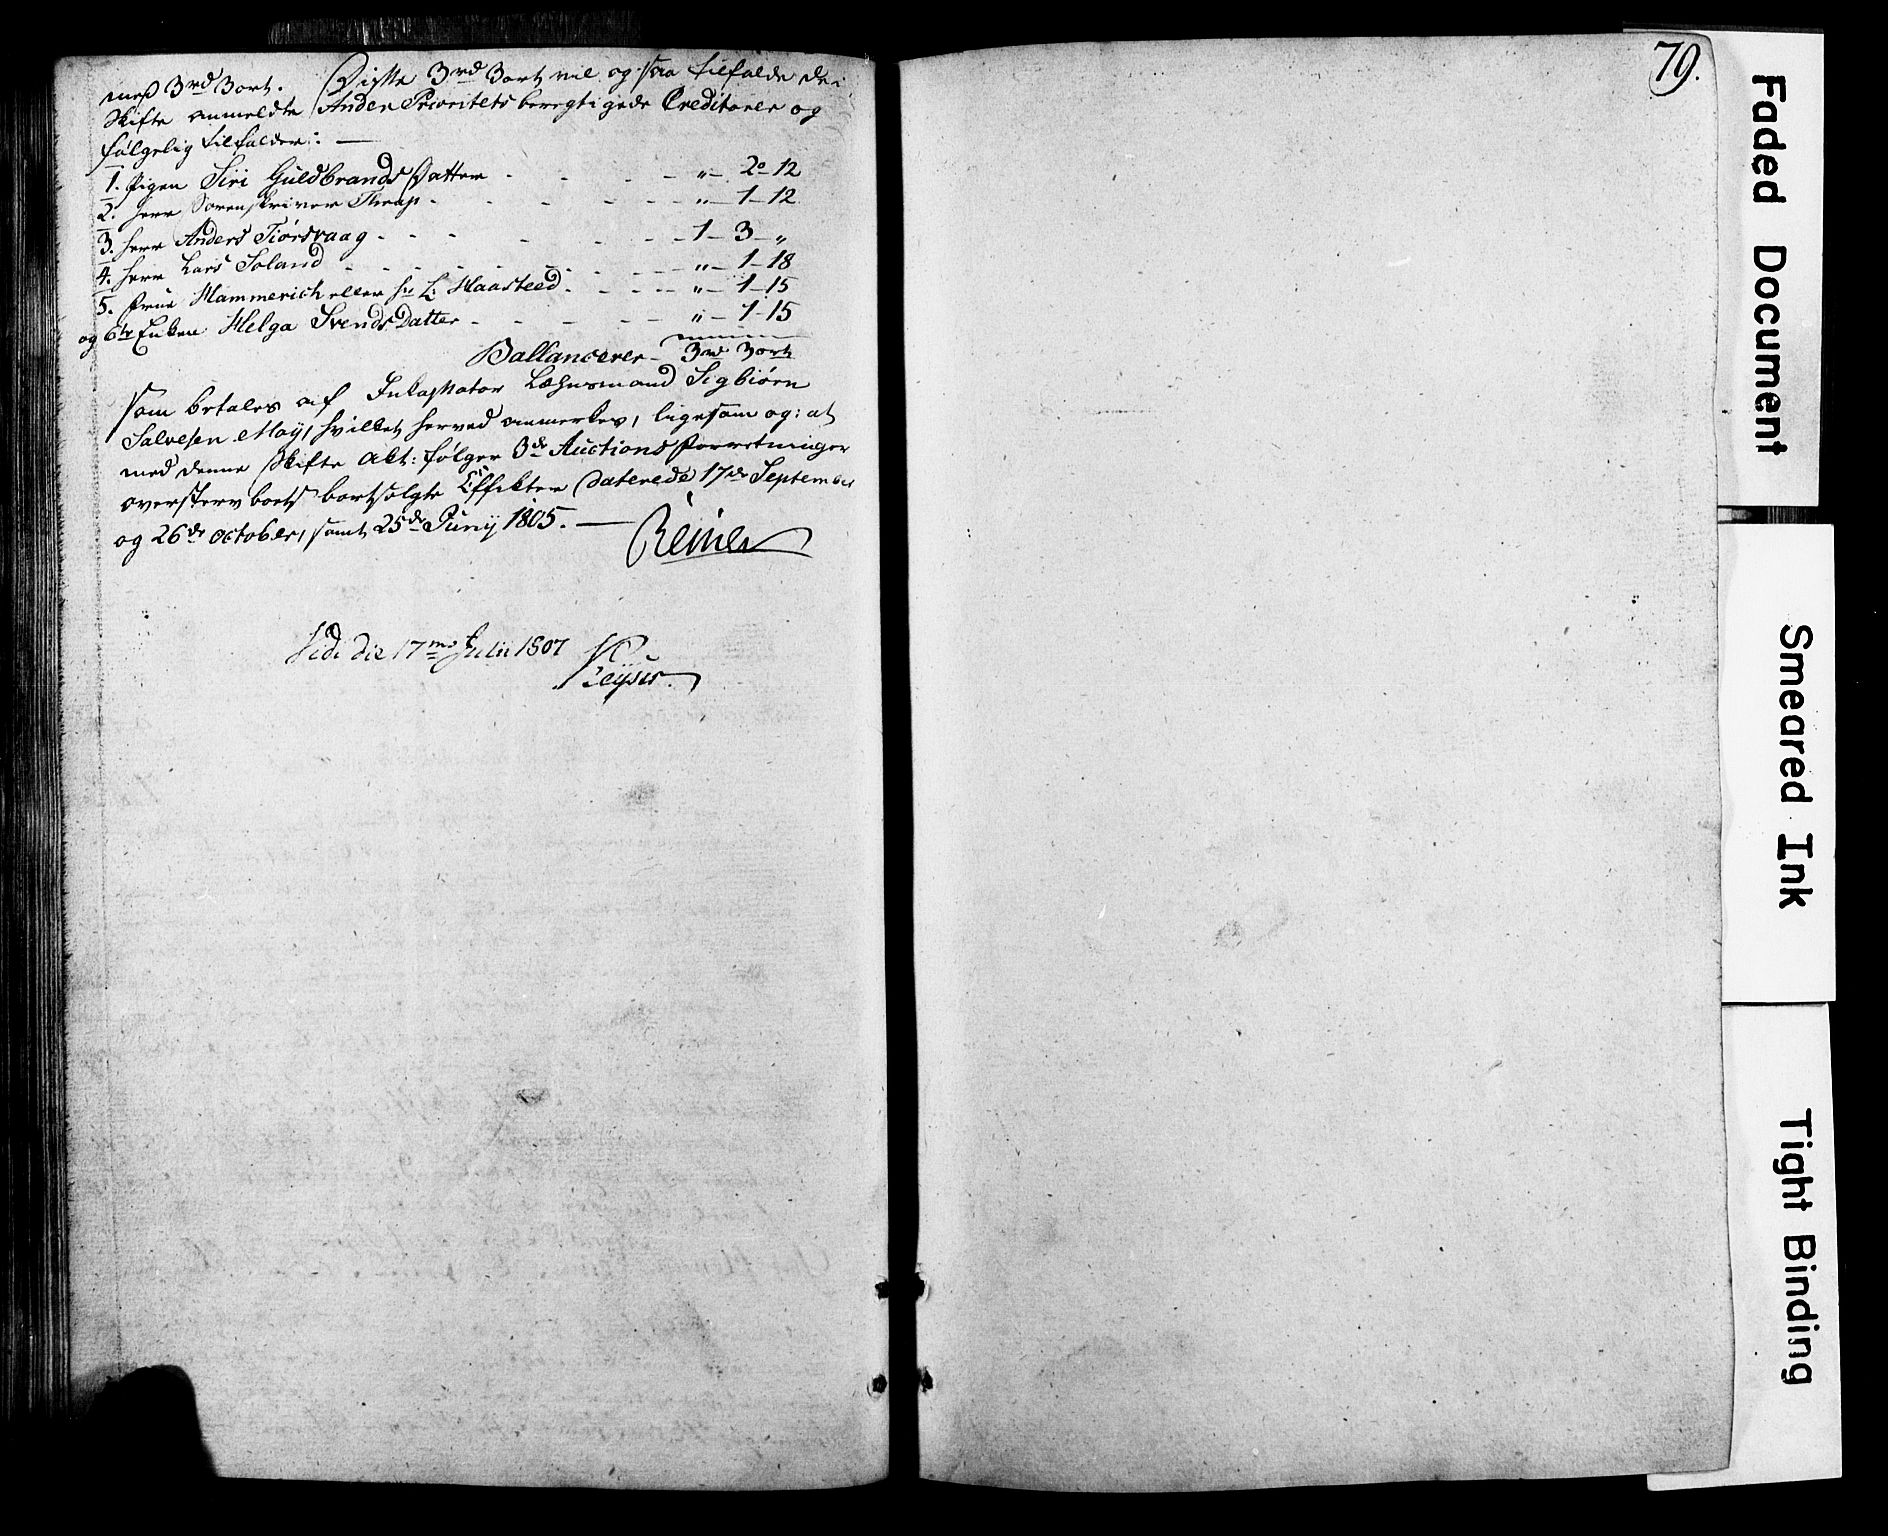 meß 3rd 3ort. Diste 3rd 3ort vil og saa tilfalde de i
Skifte anmeldte Anden Prioritets beregtigede Creditorer og
følgelig tilfalder: —
1. Pigen Siri Guldbrands Datter - - - - „ — 2° 12
2. Herr Sorenskriver Thrap - - - - „ — 1 — 12
3. Herr Anders Tiörsvaag - - - - 1 — 3 — „
4. Herr Lars Soland - - - - „ — 1 — 18
5. Frue Hammerich eller Hr L. Haasteed - - - - „ — 1 — 15
og 6te Enken Helga Svends Datter - - - - „ — 1 — 15
Ballancerer — 3rd 3ort
som betales af Inkassator Læhnsmand Sigbiörn
Salvesen Moÿ, hvilket herved anmerkes, ligesom og: at
med denne Skifte Akt: følger 3de Auctions Forretninger
over Sterv boets bortsolgte Effekter daterede 17de September
og 26de October, samt 25de Junÿ 1805. —
Reimer
Vidi die 17mo Julii 1807
Keyser.
79.
Faded Document
Smeared Ink
Tight Binding